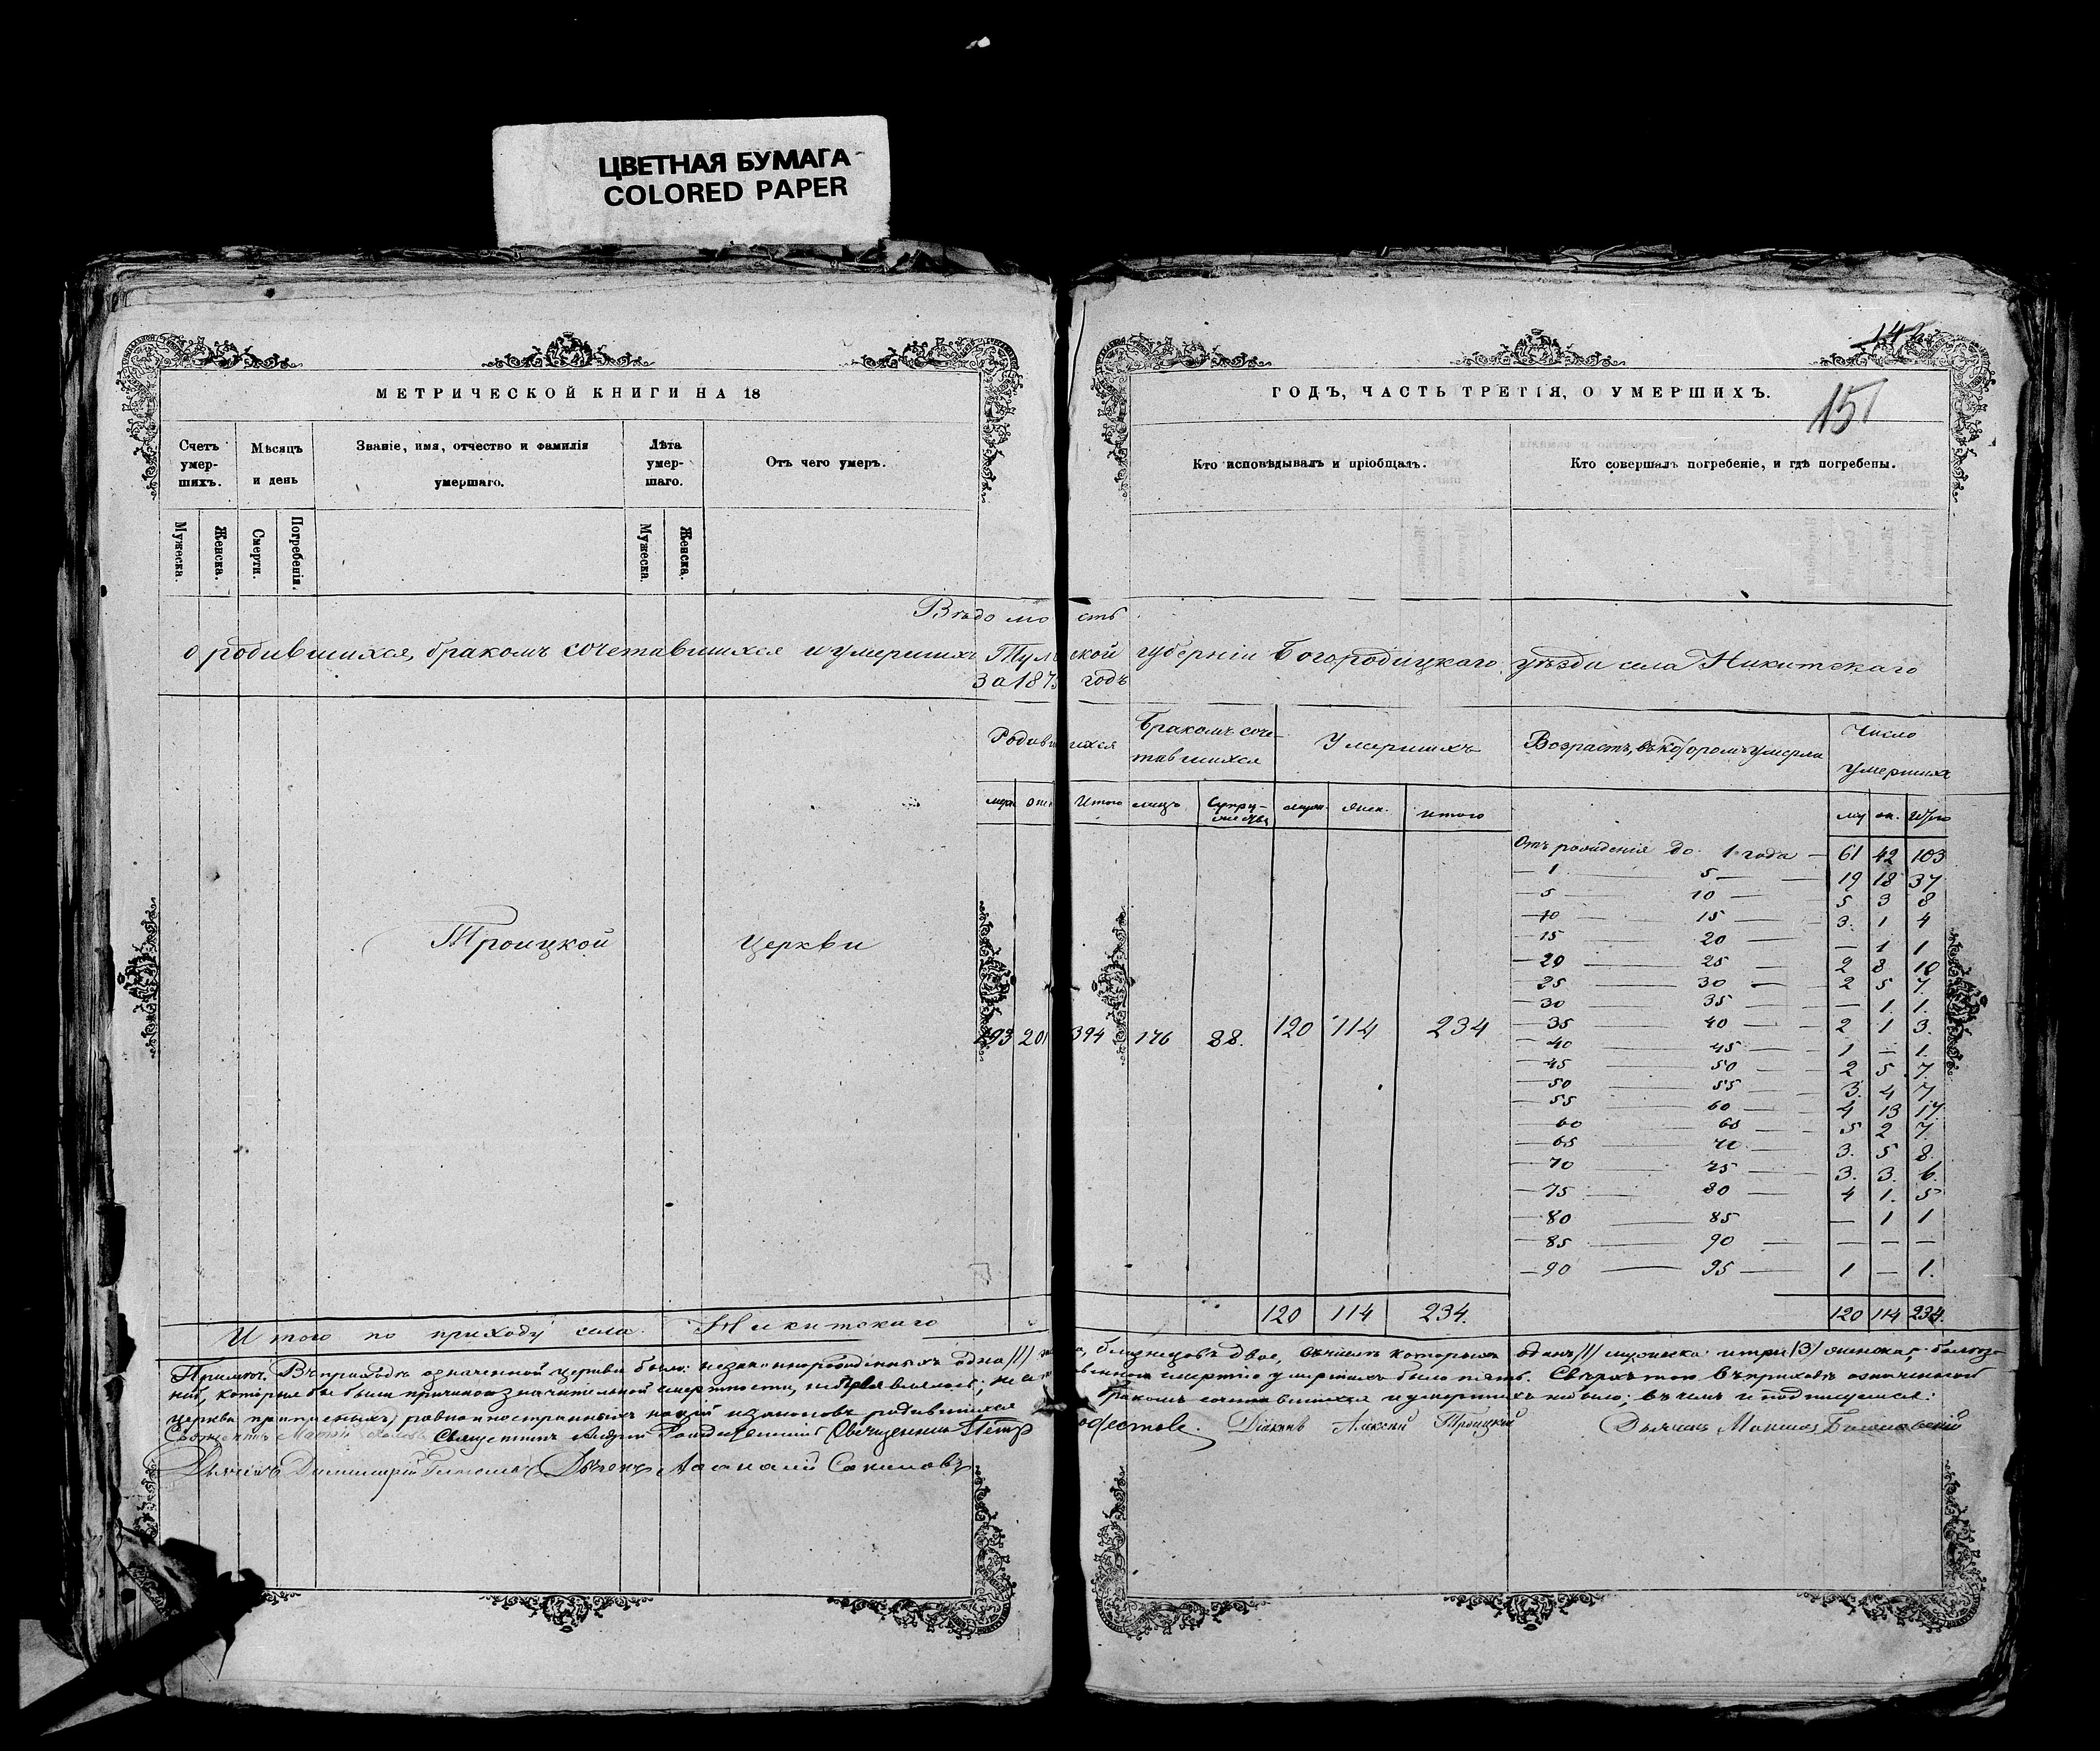 ЦВЕТНАЯ БУМАГА
COLORED PAPER
151
МЕТРИЧЕСКОЙ КНИГИ НА 18
ГОДЪ, ЧАСТЬ ТРЕТІЯ, О УМЕРШИХЪ.
Счетъ умер-шихъ.
Мѣсяцъ и день
Званіе, имя, отчество и фамилія умершаго.
Лѣта умер-шаго.
Отъ чего умеръ.
Кто исповѣдывалъ и пріобщалъ.
Кто совершалъ погребеніе, и гдѣ погребены.
Мужеска.
Женска.
Смерти.
Погребенія.
Мужеска.
Женска.
Вѣдомость
о родившихся, бракомъ сочетавшихся и умершихъ Тульской губерніи Богородицкаго уѣзда села Никитскаго
За 187 годъ
Родившихся
Бракомъ соче-тавшихся
Умершихъ
Возрастъ, въ которомъ умерли
Число умершихъ
муж. жен. Итого лицъ Супру-жествъ муж. жен. итого
му ж. Итого
Отъ рожденія до 1 года — 61 42 103
— 1 — 5 — 19 18 37
— 5 — 10 — 5 3 8
— 10 — 15 — 3. 1 4
— 15 — 20 — — 1 1
— 20 — 25 — 2 8 10
— 25 — 30 — 2 5 7.
— 30 — 35 — — 1. 1.
— 35 — 40 — 2 1 3.
— 40 — 45 — 1 — 1.
— 45 — 50 — 2 5 7.
— 50 — 55 — 3. 4 7
— 55 — 60 — 4 13 17.
— 60 — 65 — 5 2 7.
— 65 — 70 — 3. 5 8.
— 70 — 75 — 3. 3. 6.
— 75 — 80 — 4 1. 5
— 80 — 85 — — 1 1
— 85 — 90 — — — —
— 90 — 95 — 1 — 1.
Троицкой церкви
193 201 394 176 88. 120 114 234
Итого по приходу села Никитскаго
120 114 234.
120 114 234.
Примѣч. Въ приходѣ означенной церкви было: незаконнорожденныхъ одна /1/ близнецовъ двое, въ числѣ которыхъ одинъ /1/ мужеска и три /3/ женска; болѣз-
ней, которыя бы были причиною значительной смертности, не смертію умершихъ было пять. Сверхъ того въ приходѣ означенной
церкви равно иностранныхъ націй и законовъ родившихся бракомъ сочетавшихся и умершихъ не было; въ чемъ и подписуемся:
Священникъ Андрей Священникъ Петръ Діаконъ Алексѣй Троицкій Дьячекъ
Дьячекъ Димитрій